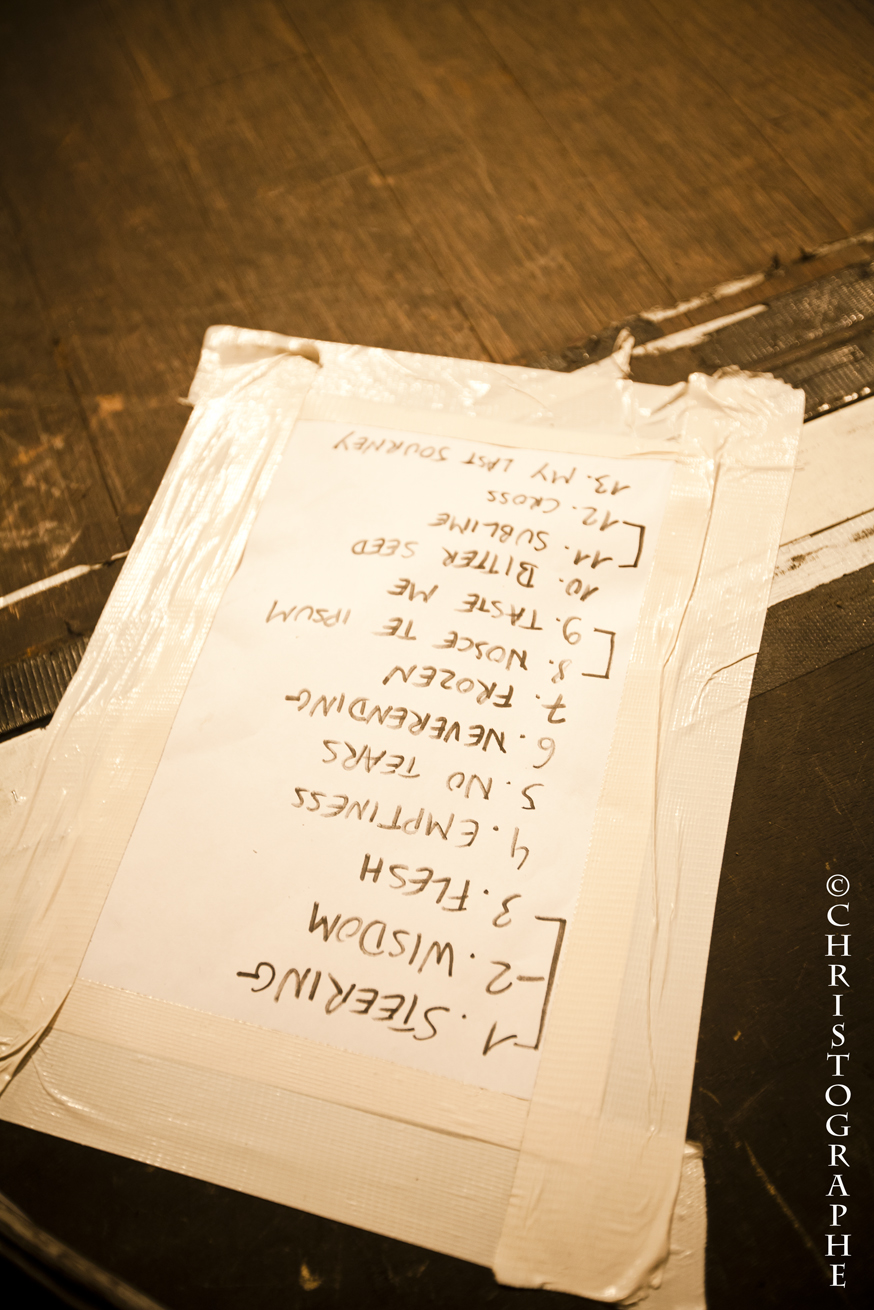 1. STEERING
2. WISDOM
3. FLESH
4. EMPTINESS
5. NO TEARS
6. NEVERENDING
7. FROZEN
8. NOSCE TE IPSUM
9. TASTE ME
10. BITTER SEED
11. SUBLIME
12. CROSS
13. MY LAST JOURNEY
©CHRISTOGRAPHE